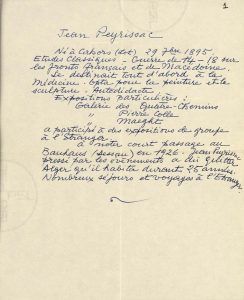 1
Jean
Peyrissac
Né à Cahors (Lot) 29 7bre 1895.
Etudes Classiques - Guerre de 14-18 sur
les fronts français et de Macédoine.
Se destinait tout d'abord à la
Médecine. Opta pour la peinture et la
sculpture. Autodidacte
Expositions Particulières:
Galerie des Quatre-Chemins
" Pierre Colle
" Maeght
a participé à des expositions de groupe
à l'Etranger
à noter court passage au
Bauhaus (Dessau) en 1926. Jean Peyrissac
pressé par les évènements a dû quitter
Alger qu'il habita durant 25 années.
Nombreux séjours et voyages à l'Etranger